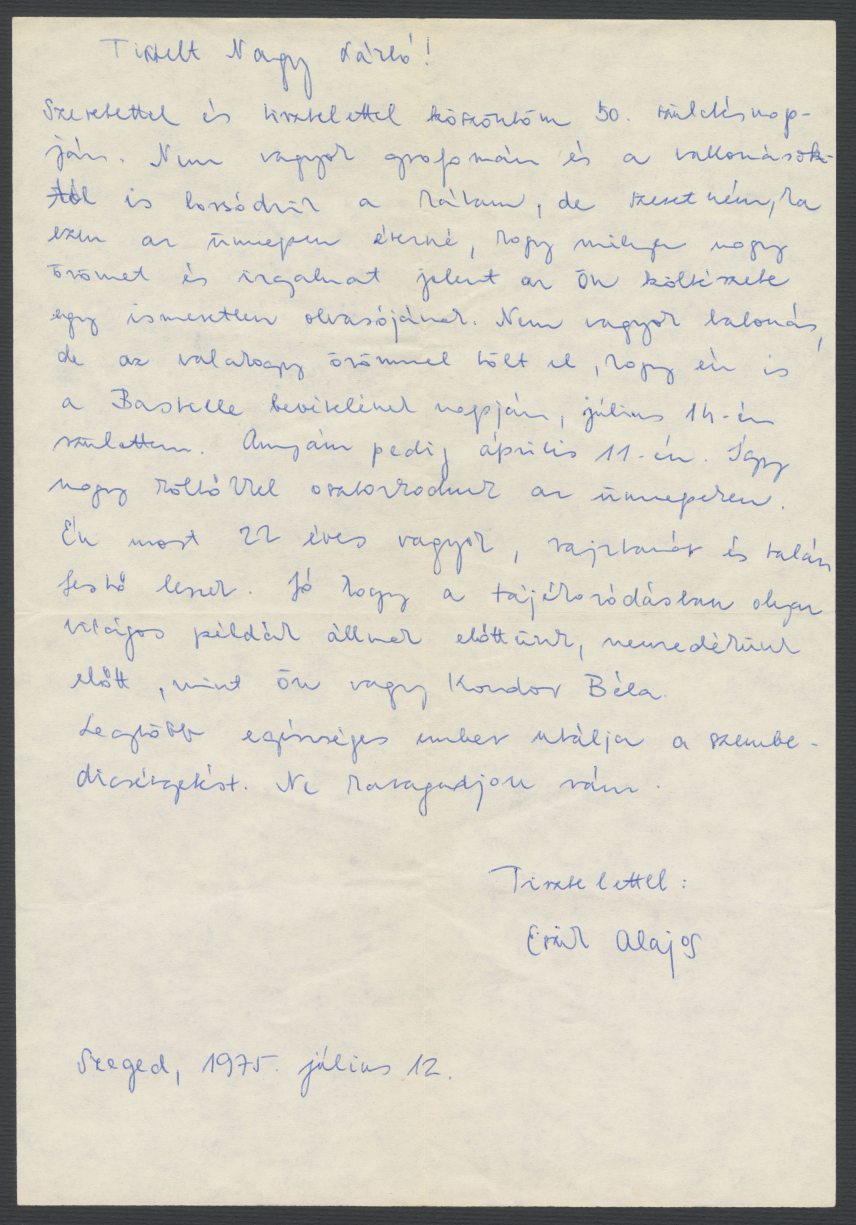 Tisztelt Nagy László!
Szeretettel és tisztelettel köszöntöm 50. születésnap-
ján. Nem vagyok grafomán és a vallomások-
tól is borsódzik a hátam, de szeretném, ha
ezen az ünnepen érezné, hogy milyen nagy
örömet és irgalmat jelent az Ön költészete
egy ismeretlen olvasójának. Nem vagyok babonás,
de az valahogy örömmel tölt el, hogy én is
a Bastille bevételének napján, július 14-én
születtem. Anyám pedig április 11-én. Így
nagy költőkkel osztozkodunk az ünnepeken.
Én most 22 éves vagyok, rajztanár és talán
festő leszek. Jó hogy a tájékozódásban olyan
világos példák állnak előttünk, nemzedékünk
előtt, mint Ön vagy Kondor Béla.
Legtöbb egészséges ember utálja a szembe-
dicsérgetést. Ne haragudjon rám.
Tisztelettel:
Eszik Alajos
Szeged, 1975. július 12.